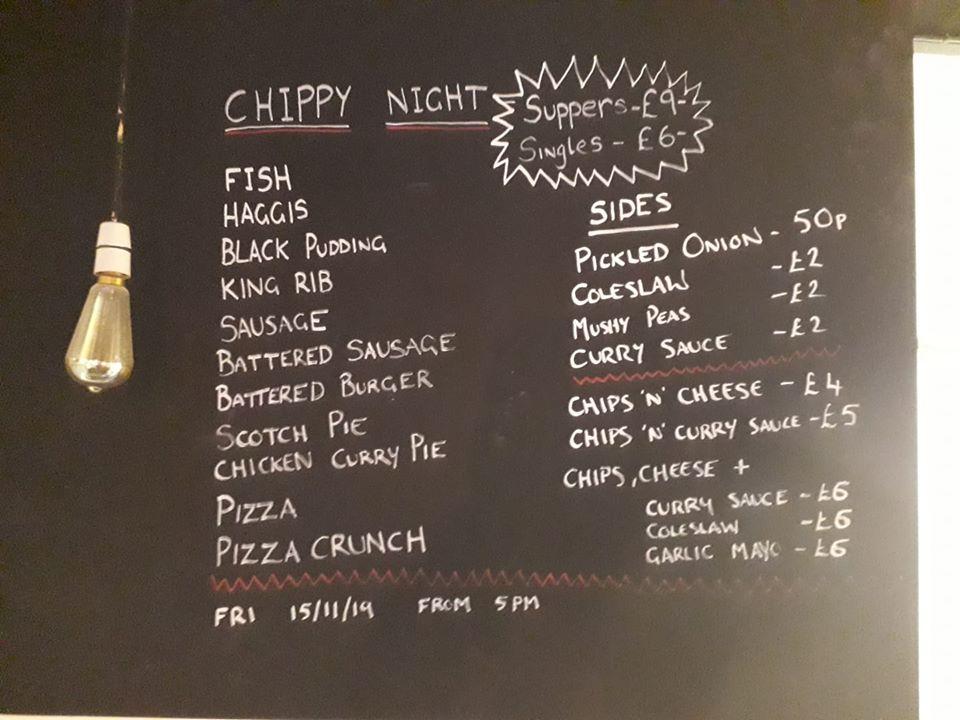 CHIPPY NIGHT
Suppers - £9-
Singles - £6-
FISH
HAGGIS
BLACK PUDDING
KING RIB
SAUSAGE
BATTERED SAUSAGE
BATTERED BURGER
SCOTCH PIE
CHICKEN CURRY PIE
PIZZA
PIZZA CRUNCH
SIDES
PICKLED ONION - 50p
COLESLAW - £2
MUSHY PEAS - £2
CURRY SAUCE - £2
CHIPS 'N' CHEESE - £4
CHIPS 'N' CURRY SAUCE - £5
CHIPS, CHEESE +
CURRY SAUCE - £6
COLESLAW - £6
GARLIC MAYO - £6
FRI 15/11/19 FROM 5PM